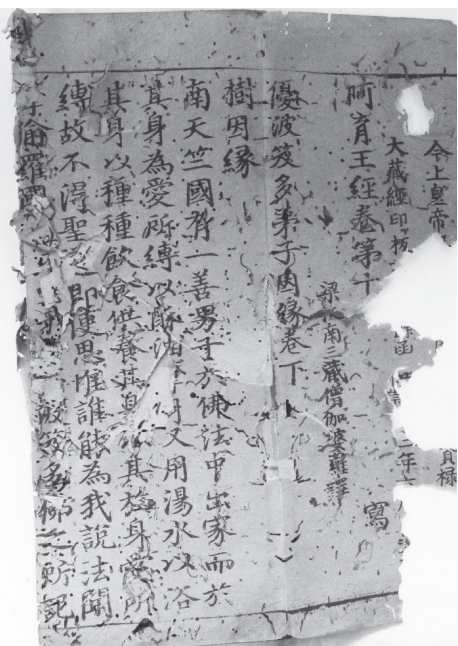 今上皇帝 貞禄
大藏經印板 二年
阿育王經卷第十 寫
梁扶南三藏僧伽婆羅譯
優波笈多弟子因緣卷下
樹因緣
南天竺國有一善男子於佛法中出家而於
其身為愛所縛以酥油 身又用湯水以浴
其身以種種飲食供養其身 其於身愛所
縛故不得聖 即便思惟誰能為我說法聞
偷羅國 笈多